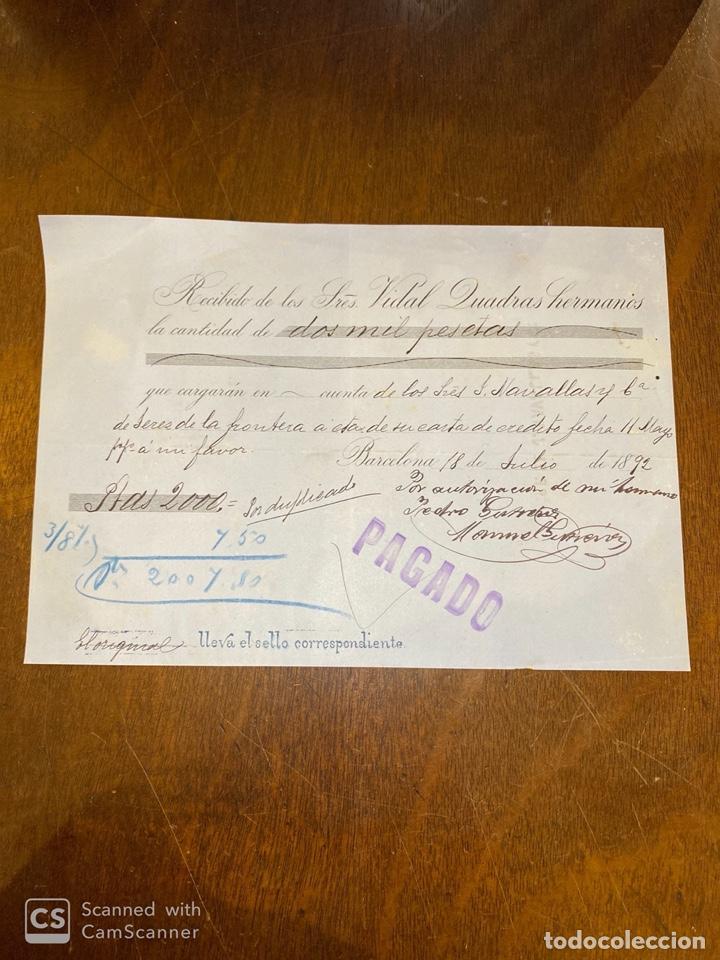 Recibido de los Sres. Vidal Quadras hermanos
la cantidad de dos mil pesetas
que cargarán en cuenta de los Sres J. Navallas y Cª
de Jerez de la frontera a cta. de su carta de credito fecha 11 Mayo
ppº á mi favor.
Barcelona 18 de Julio de 1892
Ptas 2000,= Por duplicado
Por autorización de mi hermano
Pedro Gutierrez
Manuel Gutierrez
3/8 % 7.50
2007.50
El original lleva el sello correspondiente.
PAGADO
CS Scanned with
CamScanner
todocoleccion